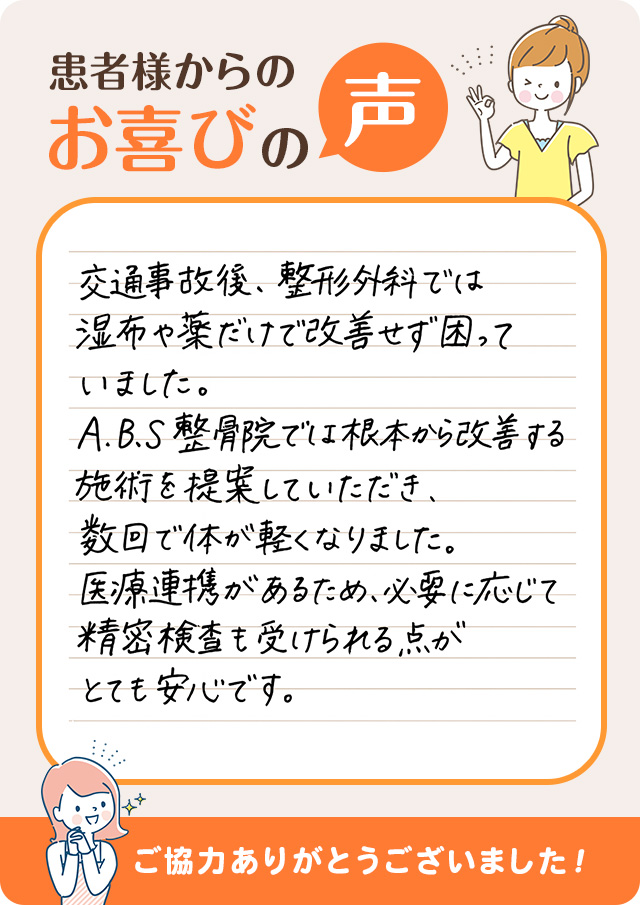 患者様からの
お喜びの声
交通事故後、整形外科では
湿布や薬だけで改善せず困って
いました。
A.B.S整骨院では根本から改善する
施術を提案していただき、
数回で体が軽くなりました。
医療連携があるため、必要に応じて
精密検査も受けられる点が
とても安心です。
ご協力ありがとうございました！